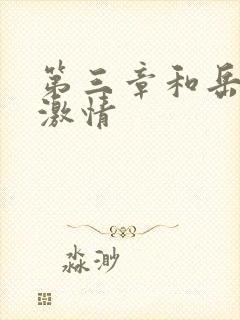 第三章和岳
激情
淼渺